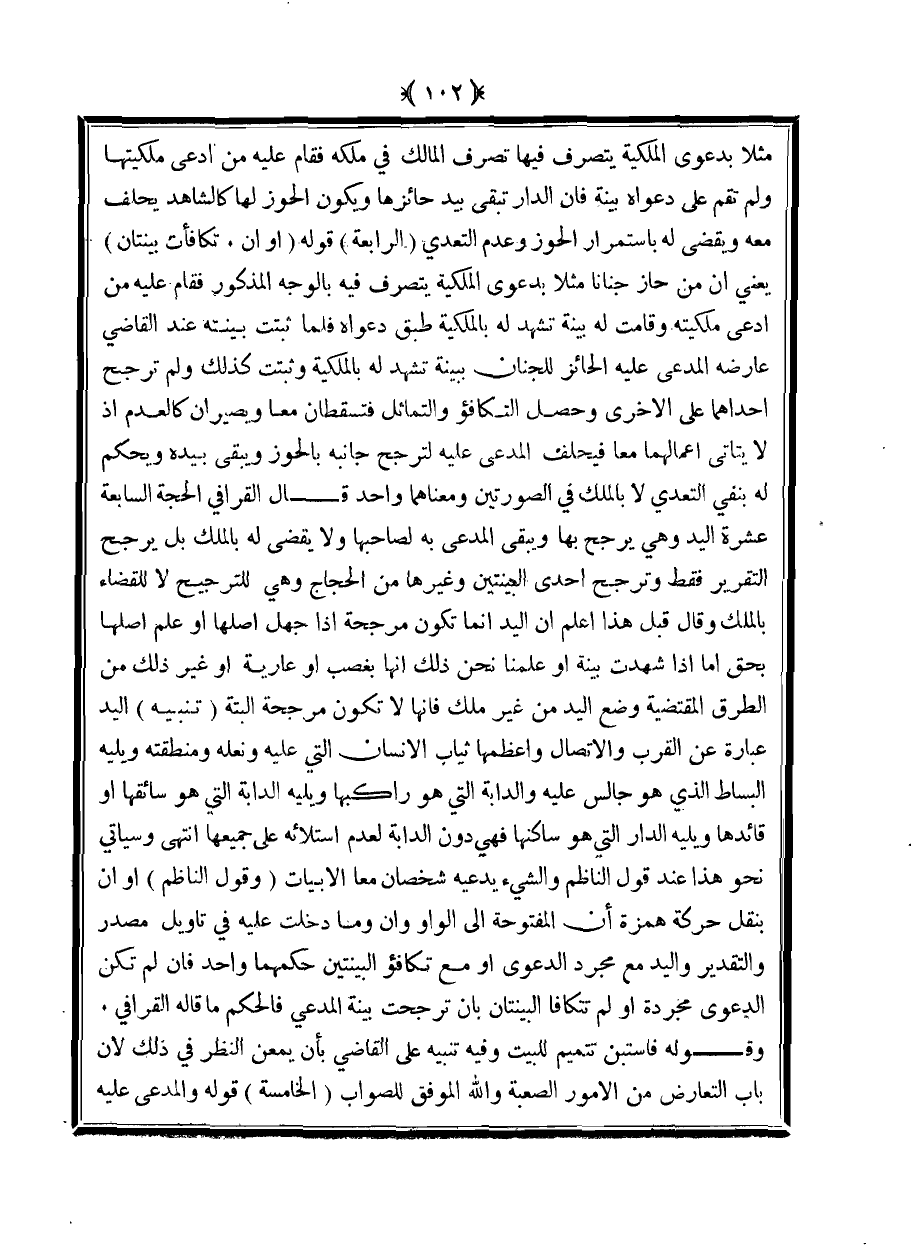 ﴿ ١٠٢ ﴾
مثلا بدعوى الملكية يتصرف فيها تصرف المالك في ملكه فقام عليه من ادعى ملكيتها
ولم تقم على دعواه بينة فان الدار تبقى بيد حائزها ويكون الحوز لها كالشاهد يحلف
معه ويقضى له باستمرار الحوز وعدم التعدي ( الرابعة ) قوله ( او ان ٠ تكافأت بينتان )
يعني ان من حاز جنانا مثلا بدعوى الملكية يتصرف فيه بالوجه المذكور فقام عليه من
ادعى ملكيته وقامت له بينة تشهد له بالملكية طبق دعواه فلما ثبتت بينته عند القاضي
عارضه المدعى عليه الحائز للجنان ببينة تشهد له بالملكية وثبتت كذلك ولم ترجح
احداهما على الاخرى وحصل التكافؤ والتماثل فتسقطان معا ويصيران كالعدم اذ
لا يتاتى اعمالهما معا فيحلف المدعى عليه لترجح جانبه بالحوز ويبقى بيده ويحكم
له بنفي التعدي لا بالملك في الصورتين ومعناهما واحد قـــال القرافي الحجة السابعة
عشرة اليد وهي يرجح بها ويبقى المدعى به لصاحبها ولا يقضى له بالملك بل يرجح
التقرير فقط وترجح احدى البينتين وغيرها من الحجاج وهي للترجيح لا للقضاء
بالملك وقال قبل هذا اعلم ان اليد انما تكون مرجحة اذا جهل اصلها او علم اصلها
بحق اما اذا شهدت بينة او علمنا نحن ذلك انها بغصب او عارية او غير ذلك من
الطرق المقتضية وضع اليد من غير ملك فانها لا تكون مرجحة البتة ( تنبيه ) اليد
عبارة عن القرب والاتصال واعظمها ثياب الانسان التي عليه ونعله ومنطقته ويليه
البساط الذي هو جالس عليه والدابة التي هو راكبها ويليه الدابة التي هو سائقها او
قائدها ويليه الدار التي هو ساكنها فهي دون الدابة لعدم استلائه على جميعها انتهى وسياتي
نحو هذا عند قول الناظم والشيء يدعيه شخصان معا الابيات ( وقول الناظم ) او ان
بنقل حركة همزة أن المفتوحة الى الواو وان وما دخلت عليه في تاويل مصدر
والتقدير واليد مع مجرد الدعوى او مع تكافؤ البينتين حكمهما واحد فان لم تكن
الدعوى مجردة او لم تتكافا البينتان بان ترجحت بينة المدعي فالحكم ما قاله القرافي ٠
وقـــوله فاستبن تتميم للبيت وفيه تنبيه على القاضي بأن يمعن النظر في ذلك لان
باب التعارض من الامور الصعبة والله الموفق للصواب ( الخامسة ) قوله والمدعى عليه